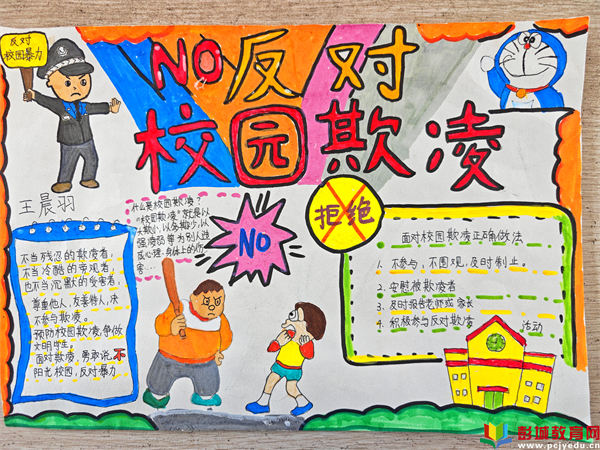 反对
校园暴力
NO反对
校园欺凌
王晨羽
什么是校园欺凌?
"校园欺凌"就是以
大欺小,以多欺少,以
强凌弱等为别人造
成心理、身体上的伤
害……
NO
拒绝
不当残忍的欺凌者,
不当冷酷的旁观者,
也不当沉默的受害者,
尊重他人,友善待人,决
不参与欺凌。
预防校园欺凌,争做
文明学生。
面对欺凌,勇敢说不
阳光校园,反对暴力
面对校园欺凌正确做法
1. 不参与,不围观,及时制止。
2. 安慰被欺凌者
3. 及时报告老师或家长
4. 积极参与反对欺凌 活动
彭城教育网
www.pcjyedu.cn